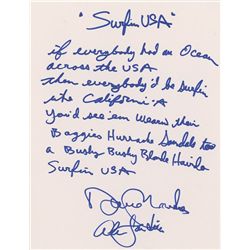 "Surfin USA"
if everybody had an Ocean
across the USA
then everybody'd be Surfin
like California
You'd see 'em wearin their
Baggies Hurrache Sandels too
a Bushy Bushy Blonde Hairdo
Surfin USA
David Marks